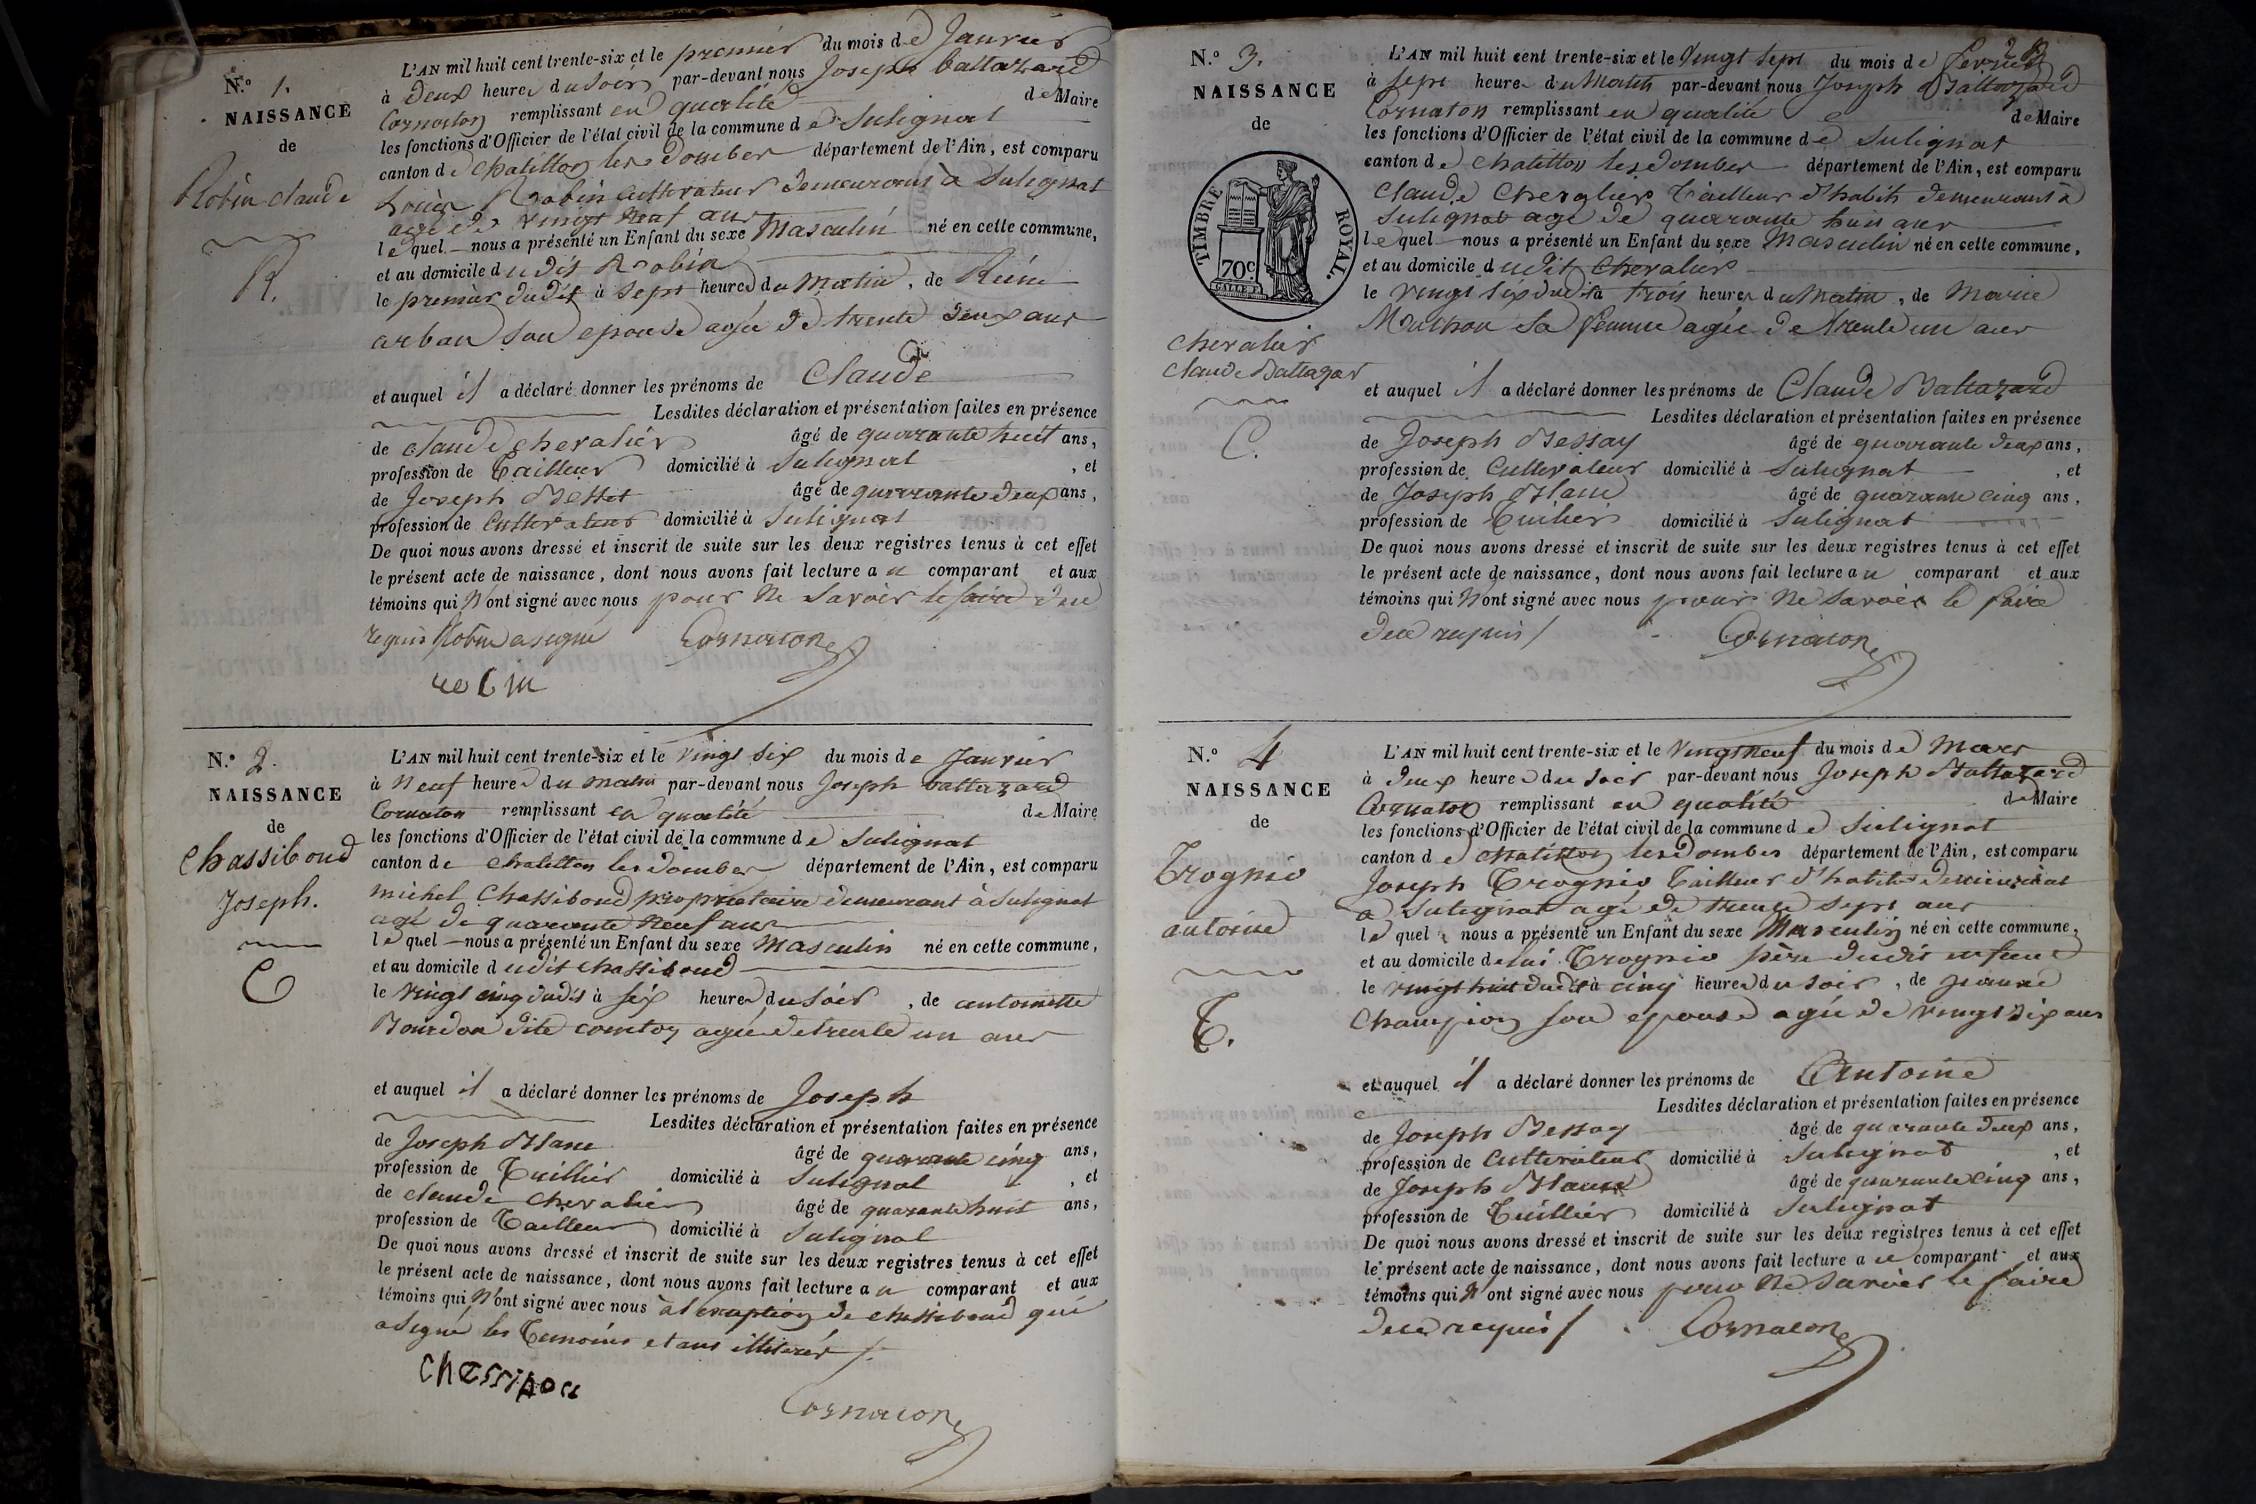 N.º 1.
NAISSANCE
de
Robin Claude
R.
L'AN mil huit cent trente-six et le premier du mois de Janvier
à Deux heures du soir par-devant nous Joseph baltazard
Cornaton remplissant en qualité de Maire
les fonctions d'Officier de l'état civil de la commune de Sulignat
canton de Chatillon les Dombes département de l'Ain, est comparu
Robin cultivateur demeurant à Sulignat
agé de vingt neuf ans
lequel nous a présenté un Enfant du sexe Masculin né en cette commune,
et au domicile dudit Robin
le premier dudit à sept heures du Matin, de Reine
arban son epouse agée de trente deux ans
et auquel il a déclaré donner les prénoms de Claude
Lesdites déclaration et présentation faites en présence
de Claude chevalier âgé de quarante huit ans,
profession de Tailleur domicilié à Sulignat, et
de Joseph âgé de quarante deux ans,
profession de Cultivateur domicilié à Sulignat
De quoi nous avons dressé et inscrit de suite sur les deux registres tenus à cet effet
le présent acte de naissance, dont nous avons fait lecture au comparant et aux
témoins qui N'ont signé avec nous pour ne savoir le faire de ce
requis Robin a signé Cornaton
robin
N.º 2.
NAISSANCE
de
Chassiboud
Joseph.
C
L'AN mil huit cent trente-six et le vingt six du mois de Janvier
à Neuf heures du matin par-devant nous Joseph baltazard
Cornaton remplissant en qualité de Maire
les fonctions d'Officier de l'état civil de la commune de Sulignat
canton de Chatillon les Dombes département de l'Ain, est comparu
michel Chassiboud propriétaire demeurant à Sulignat
agé de quarante Neuf ans
lequel nous a présenté un Enfant du sexe Masculin né en cette commune,
et au domicile dudit Chassiboud
le vingt cinq dudit à six heures du soir, de antoinette
Bourdon dite comton agée de trente un ans
et auquel il a déclaré donner les prénoms de Joseph
Lesdites déclaration et présentation faites en présence
de Joseph Blanc âgé de quarante cinq ans,
profession de Tuillier domicilié à Sulignat, et
de Claude Chevalier âgé de quarante huit ans,
profession de Tailleur domicilié à Sulignat
De quoi nous avons dressé et inscrit de suite sur les deux registres tenus à cet effet
le présent acte de naissance, dont nous avons fait lecture au comparant et aux
témoins qui N'ont signé avec nous à l'exception de Chassiboud qui
a signé les Temoins etans illiterés
Chassibou
Cornaton
N.º 3.
NAISSANCE
de
TIMBRE ROYAL.
70c.
chevalier
Claude Baltazar
C.
L'AN mil huit cent trente-six et le Vingt sept du mois de Fevrier
à sept heures du Matin par-devant nous Joseph Baltazard
Cornaton remplissant en qualité de Maire
les fonctions d'Officier de l'état civil de la commune de Sulignat
canton de Chatillon les Dombes département de l'Ain, est comparu
Claude Chevalier Tailleur d'habits demeurant à
Sulignat agé de quarante huit ans
lequel nous a présenté un Enfant du sexe Masculin né en cette commune,
et au domicile dudit Chevalier
le vingt six dudit à trois heures du Matin, de Marie
Muchon sa femme agée de trente un ans
et auquel il a déclaré donner les prénoms de Claude Baltazard
Lesdites déclaration et présentation faites en présence
de Joseph Bessay âgé de quarante deux ans,
profession de Cultivateur domicilié à Sulignat, et
de Joseph Blanc âgé de quarante cinq ans,
profession de Tuilier domicilié à Sulignat
De quoi nous avons dressé et inscrit de suite sur les deux registres tenus à cet effet
le présent acte de naissance, dont nous avons fait lecture au comparant et aux
témoins qui N'ont signé avec nous pour ne savoir le faire
de ce requis / Cornaton
N.º 4
NAISSANCE
de
Trognio
antoine
T.
L'AN mil huit cent trente-six et le vingt neuf du mois de Mars
à deux heures du soir par-devant nous Joseph Baltazard
Cornaton remplissant en qualité de Maire
les fonctions d'Officier de l'état civil de la commune de Sulignat
canton de Chatillon les Dombes département de l'Ain, est comparu
Joseph Trognio Tailleur d'habits demeurant
à Sulignat agé de trente sept ans
lequel nous a présenté un Enfant du sexe Masculin né en cette commune,
et au domicile de lui Trognio père dudit enfant
le vingt huit dudit à cinq heures du soir, de jeanne
Champion son epouse agée de vingt six ans
et auquel il a déclaré donner les prénoms de Antoine
Lesdites déclaration et présentation faites en présence
de Joseph Bessay âgé de quarante deux ans,
profession de Cultivateur domicilié à Sulignat, et
de Joseph Blanc âgé de quarante cinq ans,
profession de Tuillier domicilié à Sulignat
De quoi nous avons dressé et inscrit de suite sur les deux registres tenus à cet effet
le présent acte de naissance, dont nous avons fait lecture au comparant et aux
témoins qui N'ont signé avec nous pour ne savoir le faire
de ce requis / Cornaton